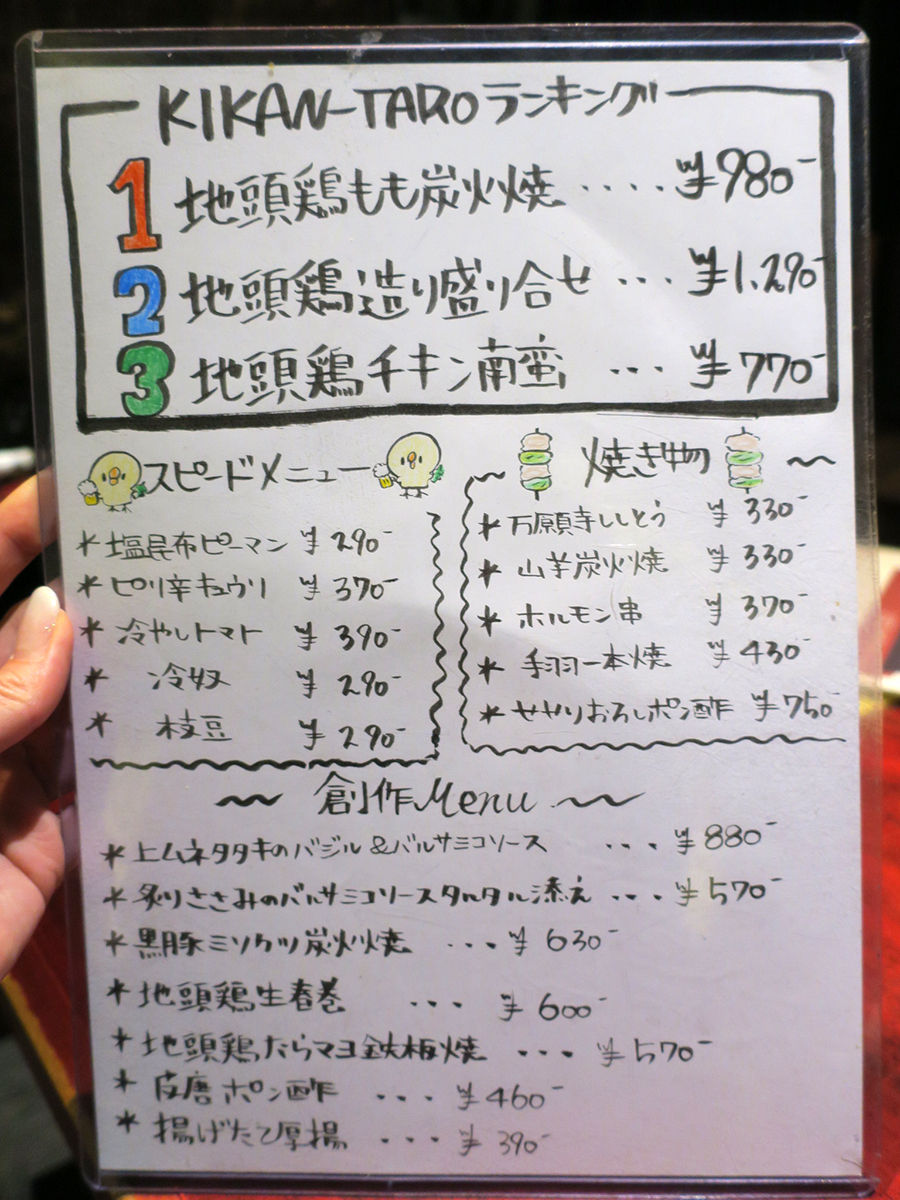 KIKAN-TAROランキング
1 地頭鶏もも炭火焼 ････ ¥980-
2 地頭鶏造り盛り合せ ･･･ ¥1,290-
3 地頭鶏チキン南蛮 ･･･ ¥770-
スピードメニュー
* 塩昆布ピーマン ¥290-
* ピリ辛キュウリ ¥370-
* 冷やしトマト ¥390-
* 冷奴 ¥290-
* 枝豆 ¥290-
焼き物
* 万願寺ししとう ¥330-
* 山芋炭火焼 ¥330-
* ホルモン串 ¥370-
* 手羽一本焼 ¥430-
* せせりおろしポン酢 ¥750-
～ 創作Menu ～
* 上ムネタタキのバジル&バルサミコソース ･･･ ¥880-
* 炙りささみのバルサミコソースタルタル添え ･･･ ¥570-
* 黒豚ミソカツ炭火焼 ･･･ ¥630-
* 地頭鶏生春巻 ･･･ ¥600-
* 地頭鶏たらマヨ鉄板焼 ･･･ ¥570-
* 皮唐ポン酢 ･･･ ¥460-
* 揚げたて厚揚 ･･･ ¥390-